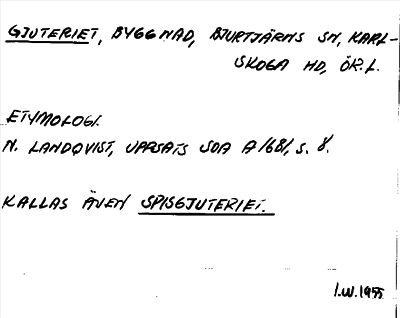 GJUTERIET, BYGGNAD, BJURTJÄRNS SN, KARL-
SKOGA HD, ÖR. L.
ETYMOLOGI.
N. LANDQVIST, UPPSATS SOA A 168/, S. 8.
KALLAS ÄVEN SPISGJUTERIET.
I.W. 1955